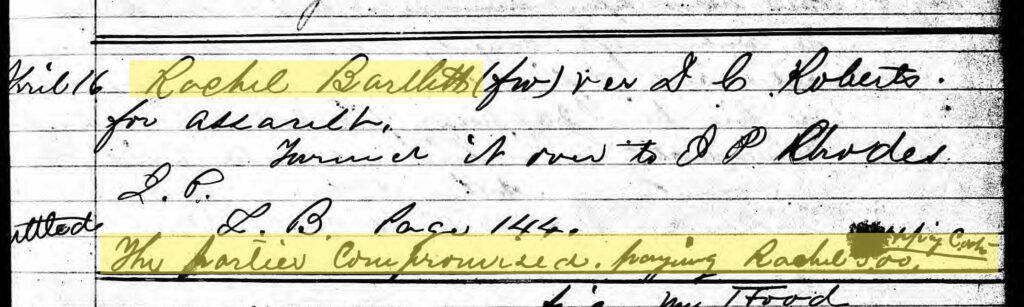 April 16 Rachel Bartlett (fw) vs D C Roberts.
for assault.
Turned it over to E P Rhodes
J. P.
Settled L. B. Page 144.
The parties Compromised. paying Rachel 5.00.